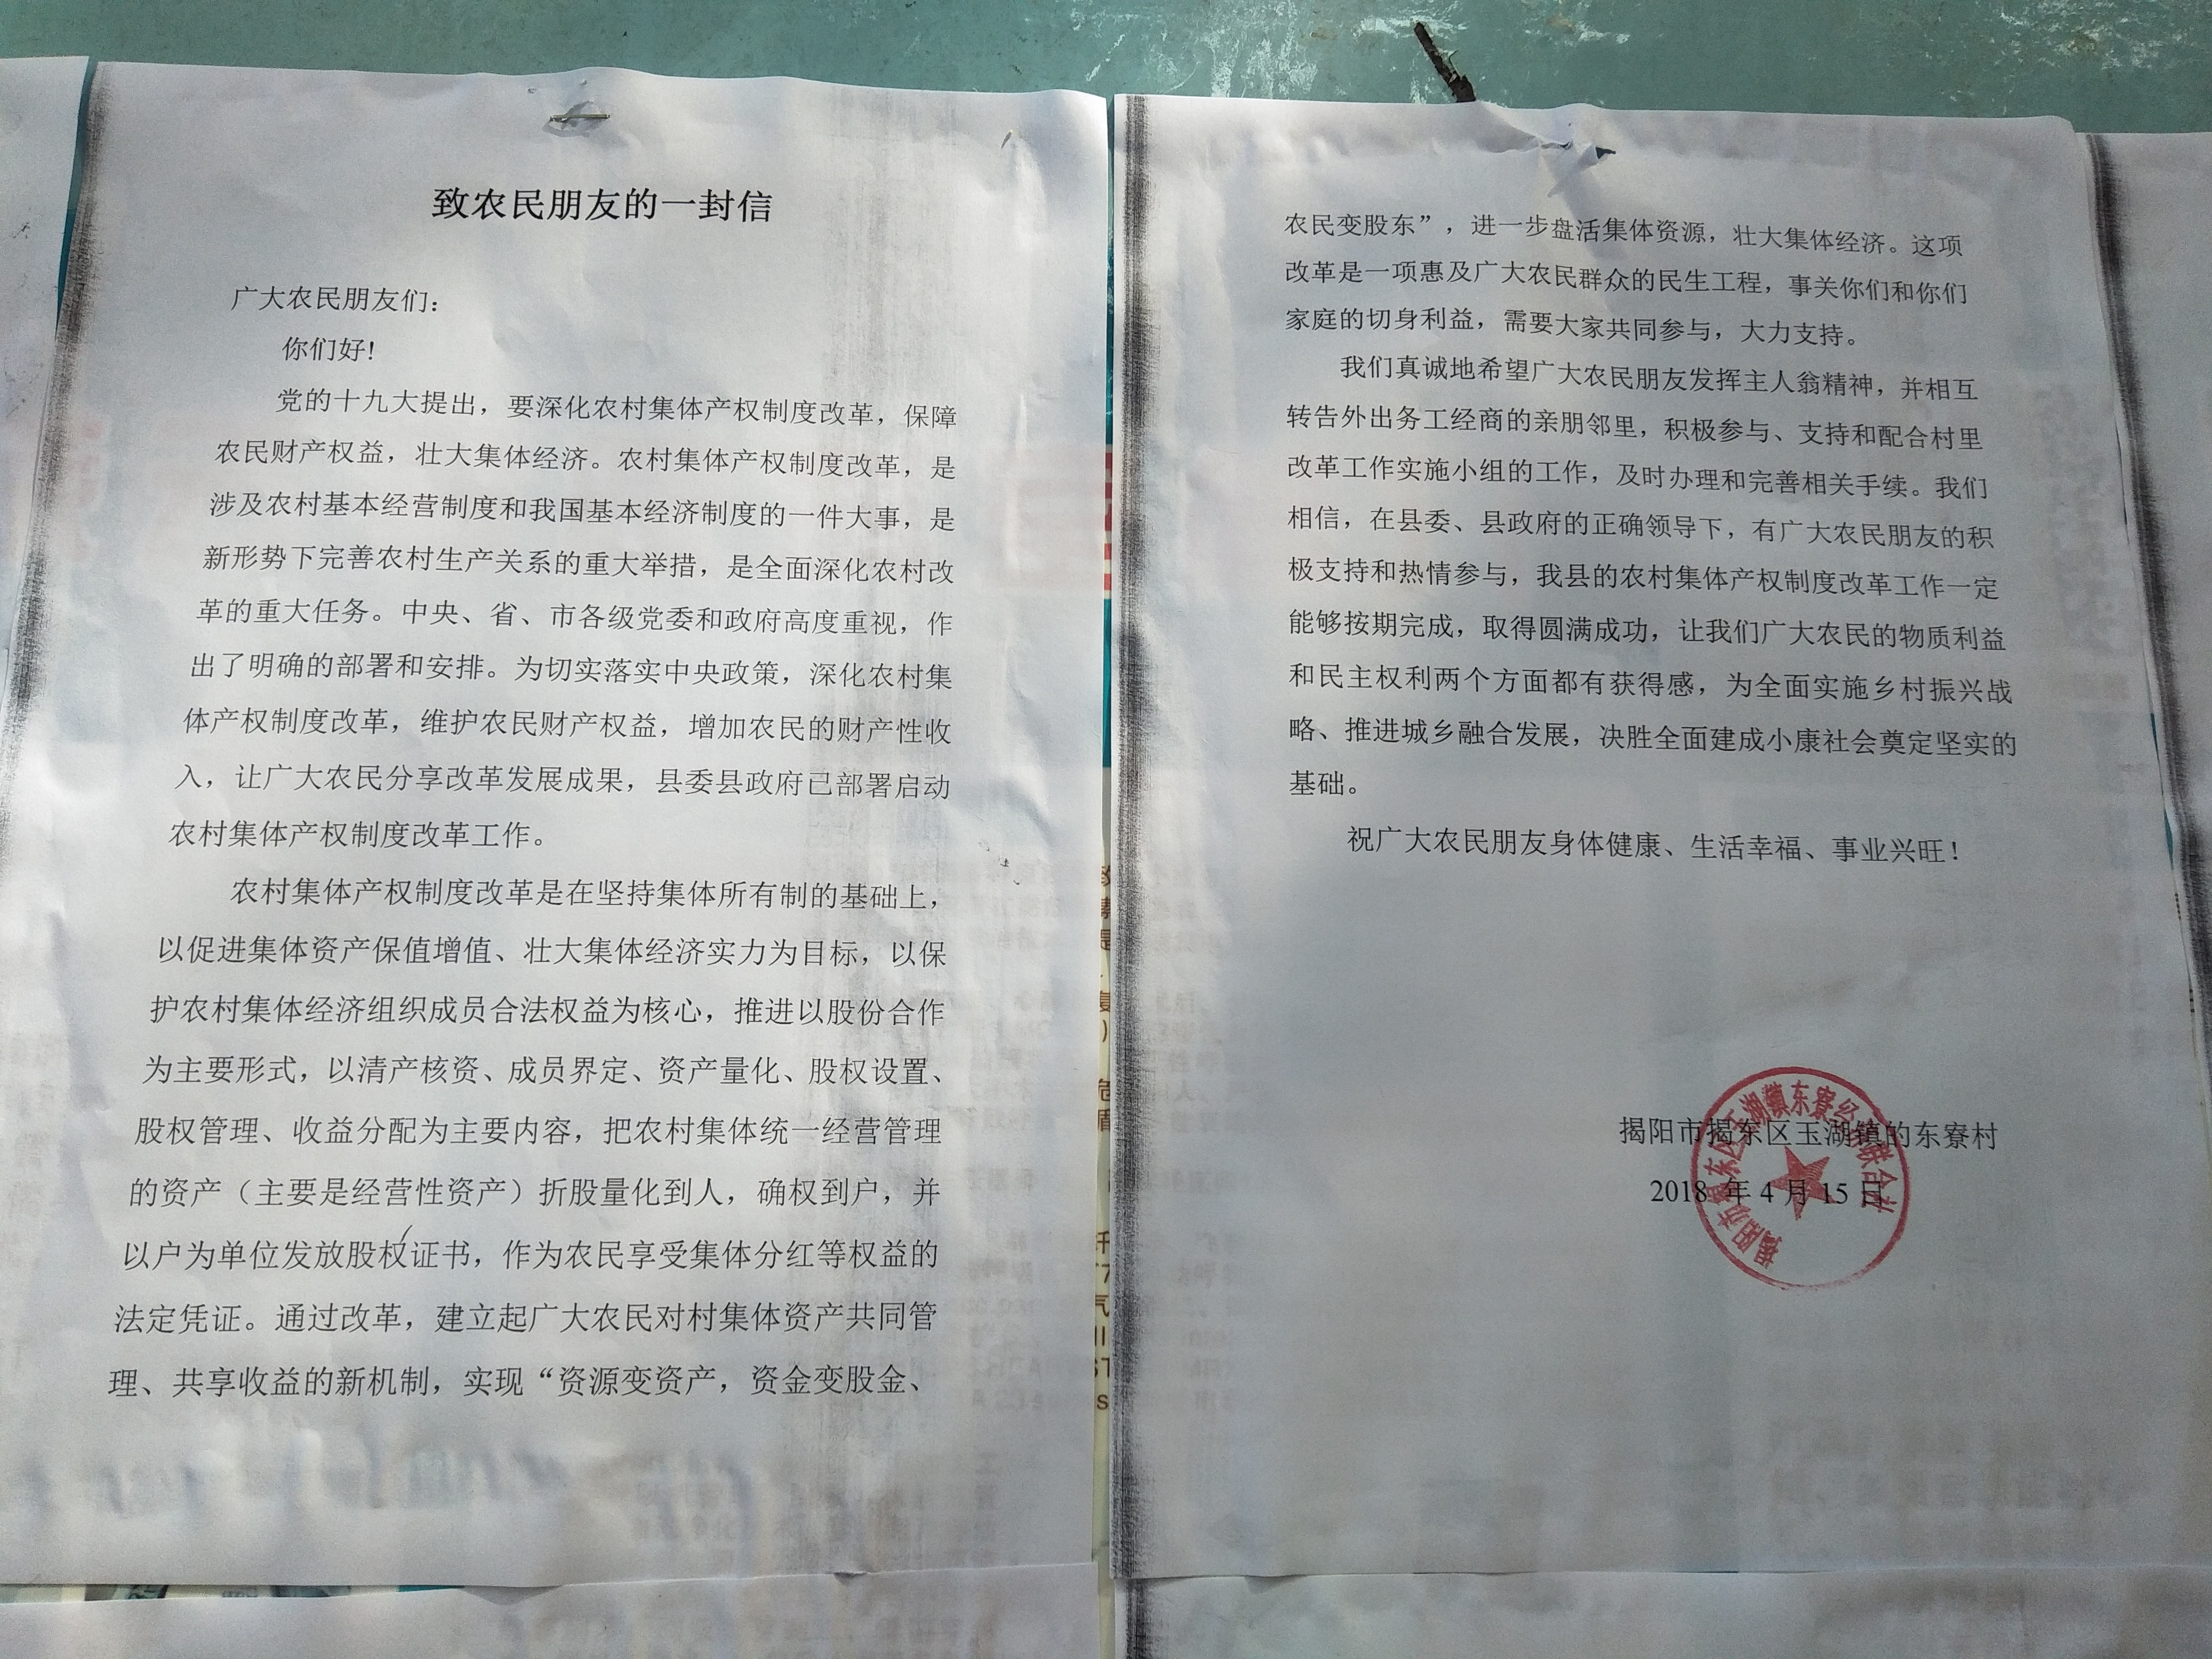 致农民朋友的一封信
广大农民朋友们：
你们好！
党的十九大提出，要深化农村集体产权制度改革，保障
农民财产权益，壮大集体经济。农村集体产权制度改革，是
涉及农村基本经营制度和我国基本经济制度的一件大事，是
新形势下完善农村生产关系的重大举措，是全面深化农村改
革的重大任务。中央、省、市各级党委和政府高度重视，作
出了明确的部署和安排。为切实落实中央政策，深化农村集
体产权制度改革，维护农民财产权益，增加农民的财产性收
入，让广大农民分享改革发展成果，县委县政府已部署启动
农村集体产权制度改革工作。
农村集体产权制度改革是在坚持集体所有制的基础上，
以促进集体资产保值增值、壮大集体经济实力为目标，以保
护农村集体经济组织成员合法权益为核心，推进以股份合作
为主要形式，以清产核资、成员界定、资产量化、股权设置、
股权管理、收益分配为主要内容，把农村集体统一经营管理
的资产（主要是经营性资产）折股量化到人，确权到户，并
以户为单位发放股权证书，作为农民享受集体分红等权益的
法定凭证。通过改革，建立起广大农民对村集体资产共同管
理、共享收益的新机制，实现“资源变资产，资金变股金、
农民变股东”，进一步盘活集体资源，壮大集体经济。这项
改革是一项惠及广大农民群众的民生工程，事关你们和你们
家庭的切身利益，需要大家共同参与，大力支持。
我们真诚地希望广大农民朋友发挥主人翁精神，并相互
转告外出务工经商的亲朋邻里，积极参与、支持和配合村里
改革工作实施小组的工作，及时办理和完善相关手续。我们
相信，在县委、县政府的正确领导下，有广大农民朋友的积
极支持和热情参与，我县的农村集体产权制度改革工作一定
能够按期完成，取得圆满成功，让我们广大农民的物质利益
和民主权利两个方面都有获得感，为全面实施乡村振兴战
略、推进城乡融合发展，决胜全面建成小康社会奠定坚实的
基础。
祝广大农民朋友身体健康、生活幸福、事业兴旺！
揭阳市揭东区玉湖镇的东寮村
2018 年 4 月 15 日
揭阳市揭东区玉湖镇东寮经济联合社